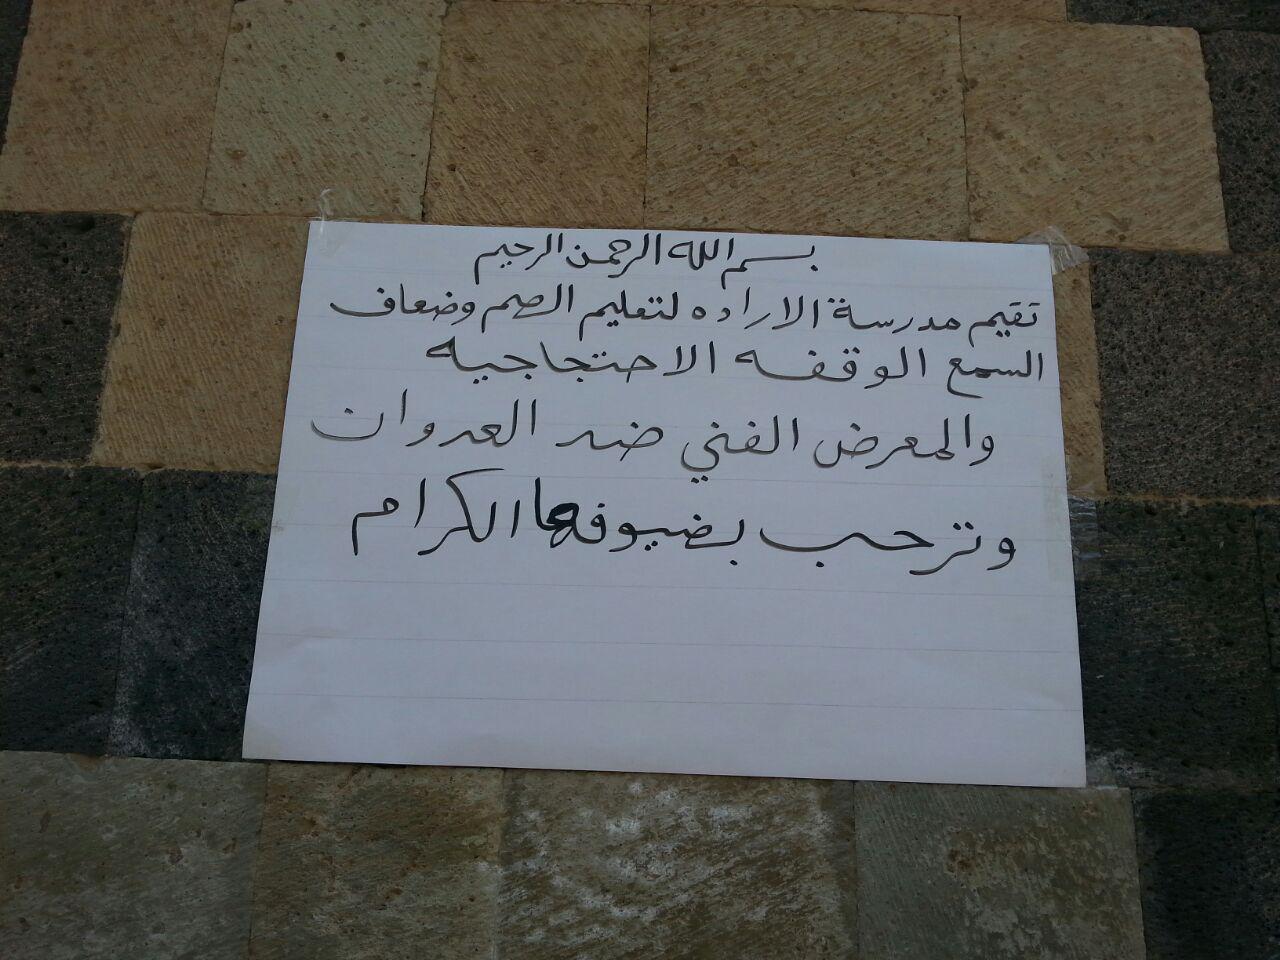 بسم الله الرحمن الرحيم
تقيم مدرسة الاراده لتعليم الصم وضعاف
السمع الوقفه الاحتجاجيه
والمعرض الفني ضد العدوان
وترحب بضيوفها الكرام